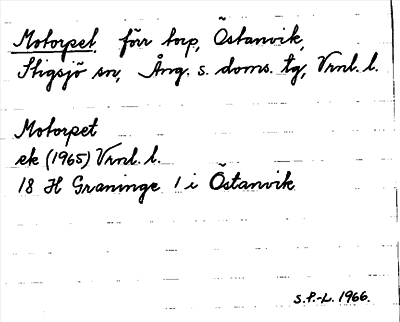 Motorpet, förr torp, Östanvik,
Stigsjö sn, Ång. s. doms. tg, Vrnl. l.
Motorpet
ek (1965) Vrnl. l.
18 H Graninge 1 i Östanvik
S.P.-L. 1966.